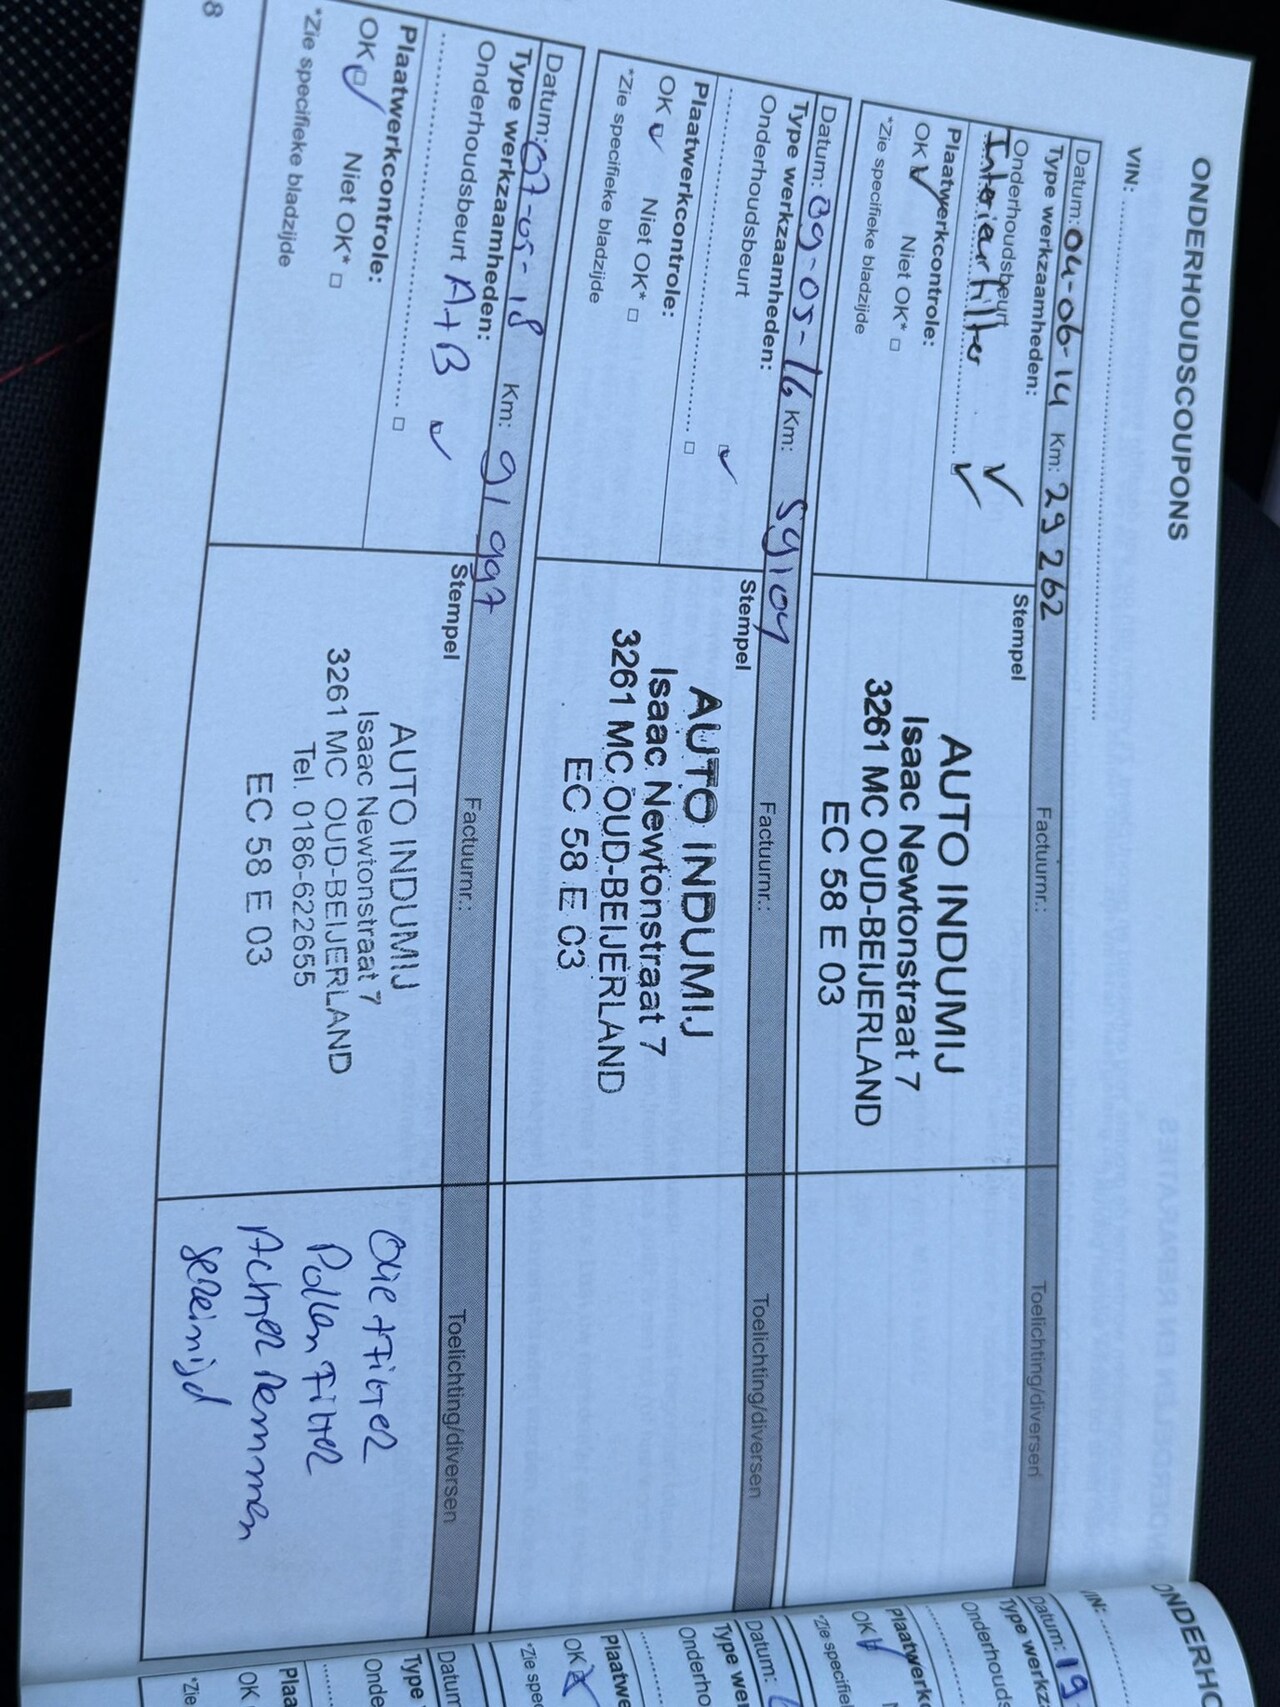 ONDERHOUDSCOUPONS
VIN:
Datum: 04-06-14 Km: 29262 Factuurnr.: Toelichting/diversen
Type werkzaamheden: Stempel
Onderhoudsbeurt ✓
Interieurfilter ✓
Plaatwerkcontrole:
OK ✓ Niet OK* □
*Zie specifieke bladzijde
AUTO INDUMIJ
Isaac Newtonstraat 7
3261 MC OUD-BEIJERLAND
EC 58 E 03
Datum: 09-05-16 Km: 59104 Factuurnr.: Toelichting/diversen
Type werkzaamheden: Stempel
Onderhoudsbeurt ✓
Plaatwerkcontrole:
OK ✓ Niet OK* □
*Zie specifieke bladzijde
AUTO INDUMIJ
Isaac Newtonstraat 7
3261 MC OUD-BEIJERLAND
EC 58 E 03
Datum: 07-05-18 Km: 91997 Factuurnr.: Toelichting/diversen
Type werkzaamheden: Stempel
Onderhoudsbeurt A+B ✓
Plaatwerkcontrole:
OK ✓ Niet OK* □
*Zie specifieke bladzijde
AUTO INDUMIJ
Isaac Newtonstraat 7
3261 MC OUD-BEIJERLAND
Tel. 0186-622655
EC 58 E 03
Olie + Filter
Pollen Filter
Achter Remmen
gereinigd
8
ONDERHO
VIN:
Datum: 19
Type werkz
Onderhouds
Plaatwerk
OK
*Zie specifie
Datum:
Type wer
Onderho
Plaatwe
OK
*Zie spec
Datum
Type
Onde
Plaa
OK
*Zie